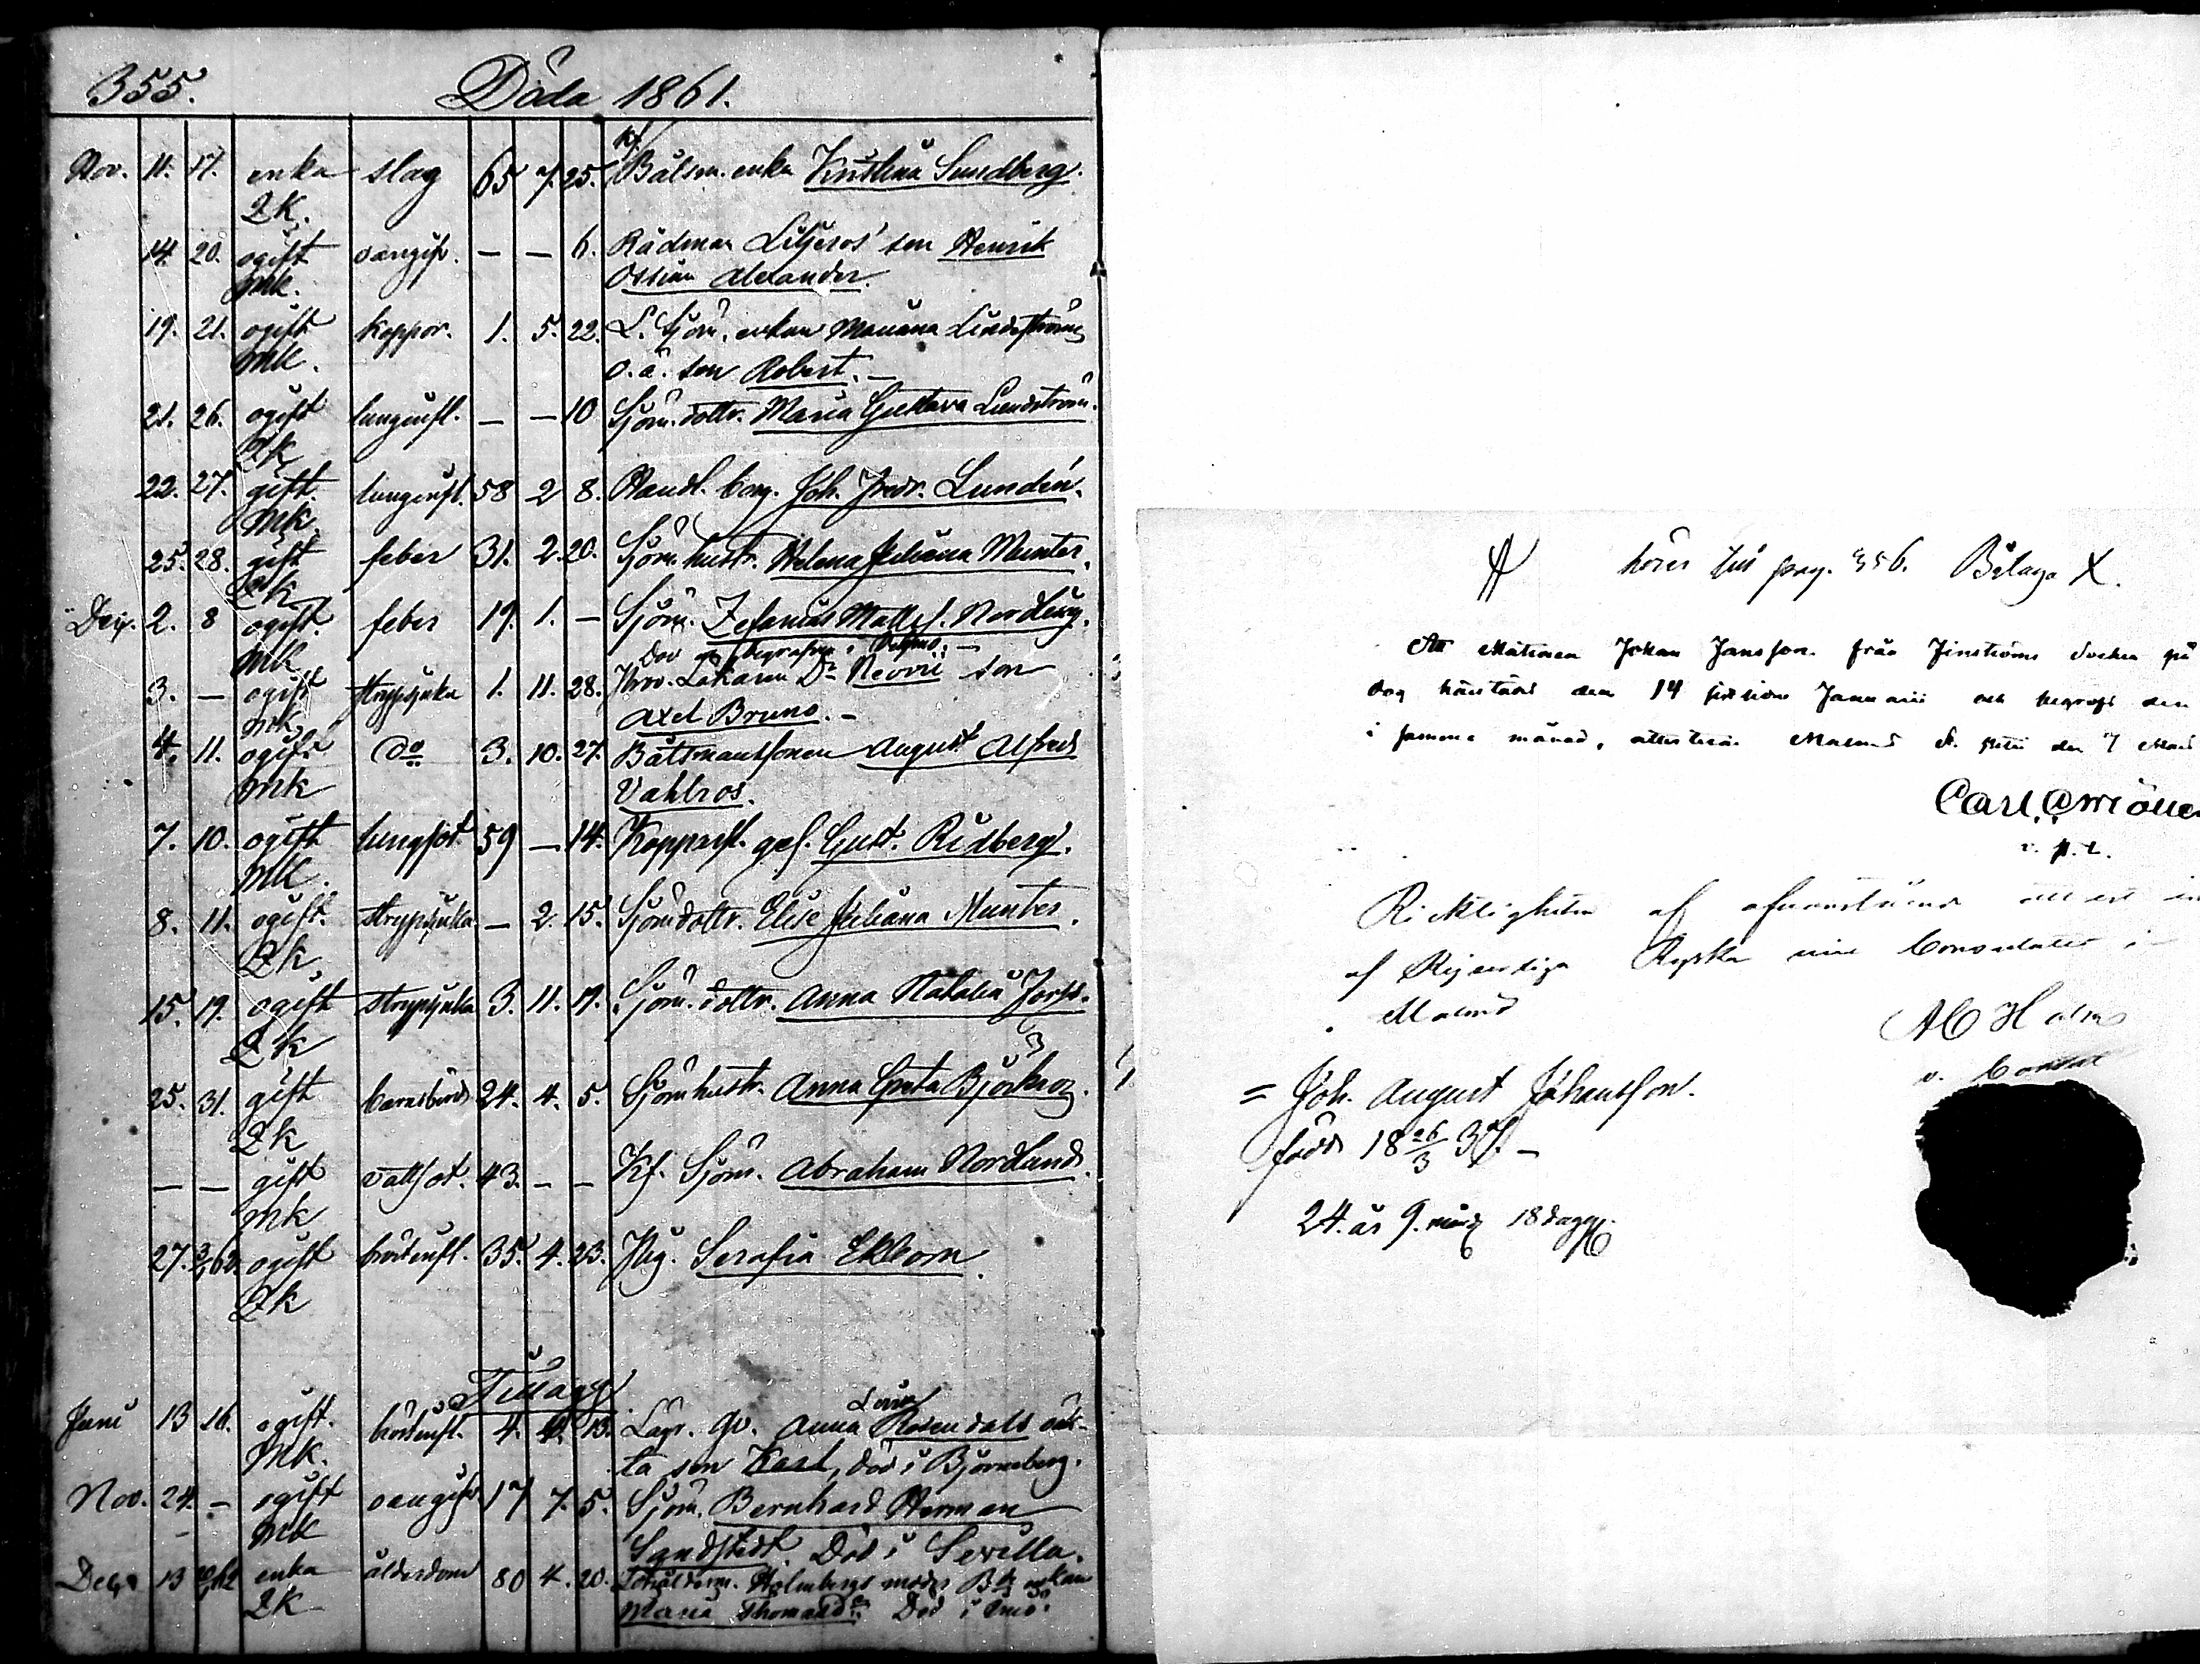 355. Döda 1861.
Nov. 11. 17. enka slag 65 7. 25. Kf. Båtsm. enka Kristina Sundberg.
Qk.
14. 20. ogift oangifv. — — 6. Rådman Liljeros' son Henrik
mk. Ossian Alexander.
19. 21. ogift koppor. 1. 5. 22. L. Sjöm. enkan Mariana Lindströms
mk. o. ä. son Robert. —
21. 26. ogift lunginfl. — — 10 Sjöm. dottr. Maria Gustava Lundström.
Qk
22. 27. gift. lunginfl. 58 2 8. Handl. borg. Joh. Fredr. Lundén.
mk.
25. 28. gift feber 31. 2. 20. Sjöm. hustr. Helena Juliana Munter.
Qk
Dec. 2. 8 ogift. feber 19. 1. — Sjöm. Zefanias Nordling.
mk död
3. — ogift strypsjuka 1. 11. 28. Prov. Läkaren Dr. son
mk. Axel Bruno. —
4. 11. ogift do 3. 10. 27. Båtsmanssonen August Alfred
mk Vahlros.
7. 10. ogift lungsot 59 — 14. Kopparsl. ges. Gust. Ridberg.
mk.
8. 11. ogift. strypsjuka — 2. 15. Sjöm. dottr. Elise Juliana Munter.
Qk
15. 19. ogift strypsjuka 3. 11. 19. Sjöm. dottr. Anna Natalia
Qk
25. 31. gift barnsbörd 24. 4. 5. Sjöm. hustr. Anna Greta
Qk
— — gift vattsot. 43. — — Kf. Sjöm. Abraham Nordlund.
mk
27. ogift bröstinfl. 35. 4. 23. Pig. Serafia Ekbom.
Qk
Tillägg.
Juni 13 16. ogift. bröstinfl. 4. 13. Anna Lovisa Rosendals oäk-
mk. ta son Karl, död i Björneborg.
Nov. 24. — ogift oangifv. 17 7. 5. Sjöm. Bernhard Herman
mk Sandstedt. Död i Sevilla.
Dec. 13 enka ålderdom 80 4. 20. Holmbergs moder enkan
Qk Maria Thomasdr. Död i
hörer till pag. 356. Bilaga X.
Att Matrosen Johan Jansson från Finströms Socken på
dog härstädes den 14 sistlidne Januarii och begrofs den
i samma månad, attesteras Malmö St. Petri den 7 Mars
Carl
v. p.
Riktigheten af ofvanstående attest
af Kejserliga Ryska vice Consulatet i
Malmö
v. Consul
= Joh. August Johansson.
född 18 26/3 37. —
24. år 9. mån. 18 dagar.